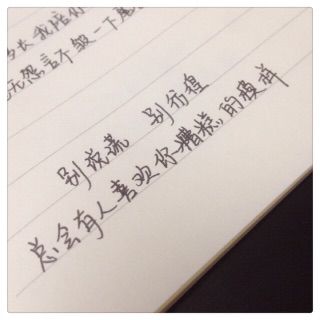 多长我陪你
无怨言不皱一下眉
别说谎 别彷徨
总会有人喜欢你糟糕的模样